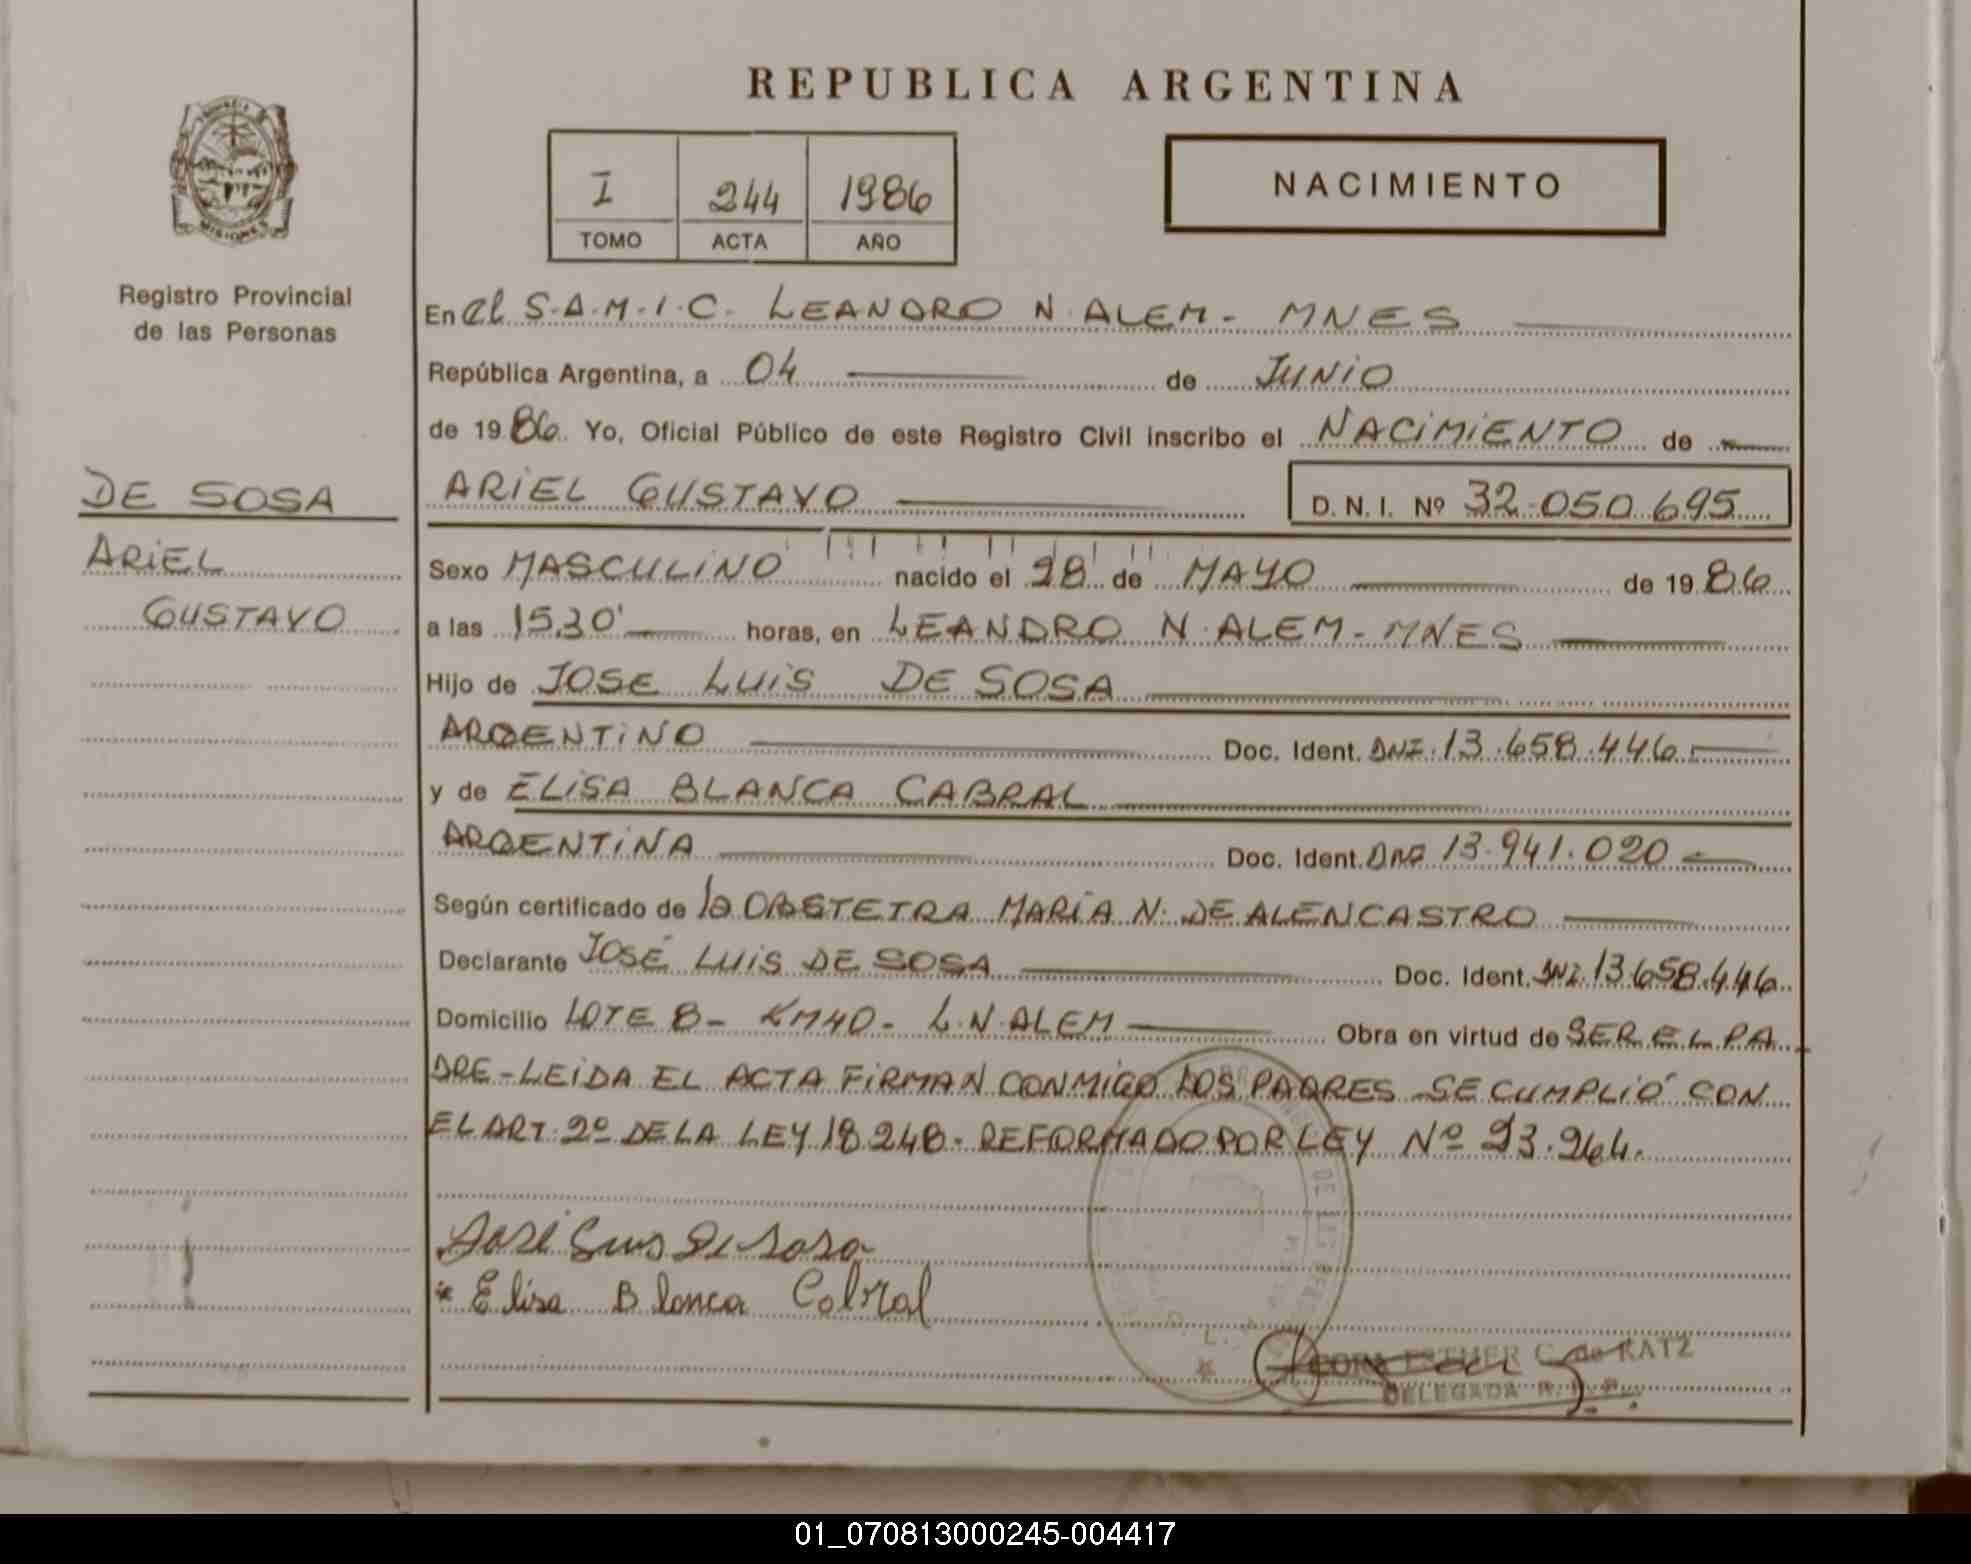 REPUBLICA ARGENTINA
MISIONES
Registro Provincial
de las Personas
I 244 1986
TOMO ACTA AÑO
NACIMIENTO
En el S.A.M.I.C. LEANDRO N. ALEM - MNES
República Argentina, a 04 de JUNIO
de 1986. Yo, Oficial Público de este Registro Civil inscribo el NACIMIENTO de
DE SOSA
ARIEL GUSTAVO D. N. I. Nº 32.050.695
ARIEL
GUSTAVO
Sexo MASCULINO nacido el 28 de MAYO de 1986
a las 15,30' horas, en LEANDRO N. ALEM - MNES
Hijo de JOSE LUIS DE SOSA
ARGENTINO Doc. Ident. DNI. 13.658.446.
y de ELISA BLANCA CABRAL
ARGENTINA Doc. Ident. DNI 13.941.020
Según certificado de la OBSTETRA MARIA N. DE ALENCASTRO
Declarante JOSÉ LUIS DE SOSA Doc. Ident. DNI. 13.658.446
Domicilio LOTE 8 - KM40 - L.N. ALEM Obra en virtud de SER EL PA
DRE - LEIDA EL ACTA FIRMAN CONMIGO LOS PADRES SE CUMPLIÓ CON
EL ART. 2º DE LA LEY 18.248 - REFORMADO POR LEY Nº 23.264.
José Luis De Sosa
Elisa Blanca Cabral
ESTHER C. de KATZ
DELEGADA R.
01_070813000245-004417